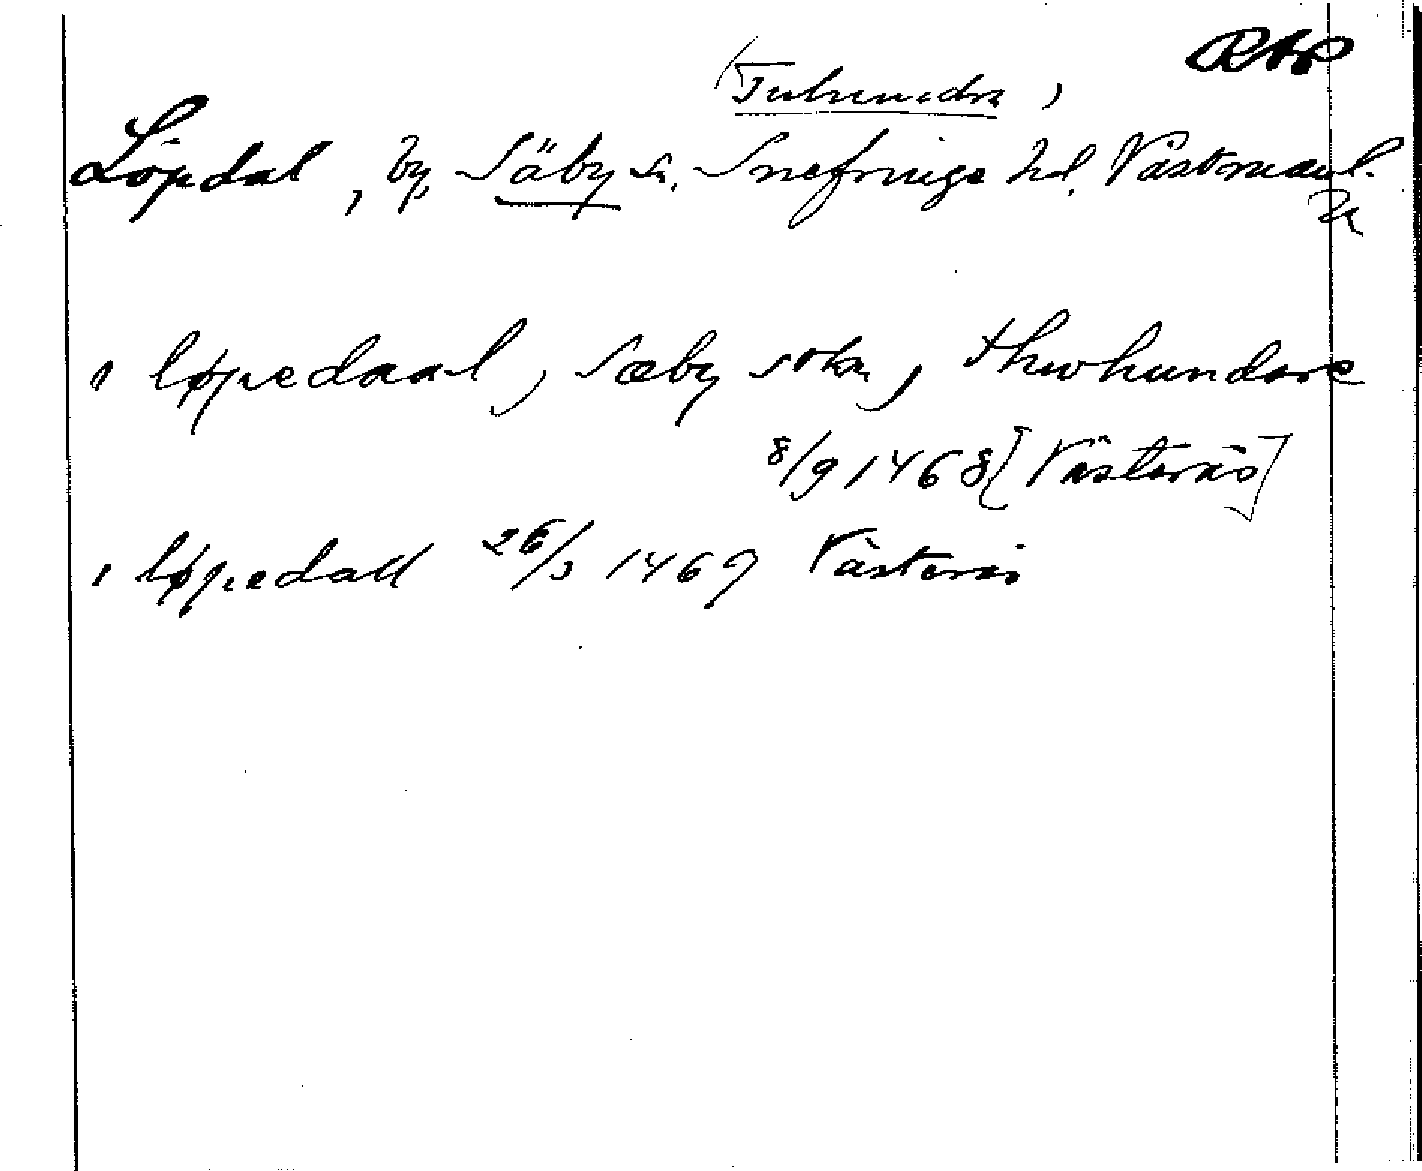 RAP
(Tuhundra)
Löpdal, by Säby sn. Snefringe hd. Västmanl.
i løpedaal, Sæby sokn, thwhundare
8/9 1468 [Västerås]
i løpedall 26/3 1469 Västerås